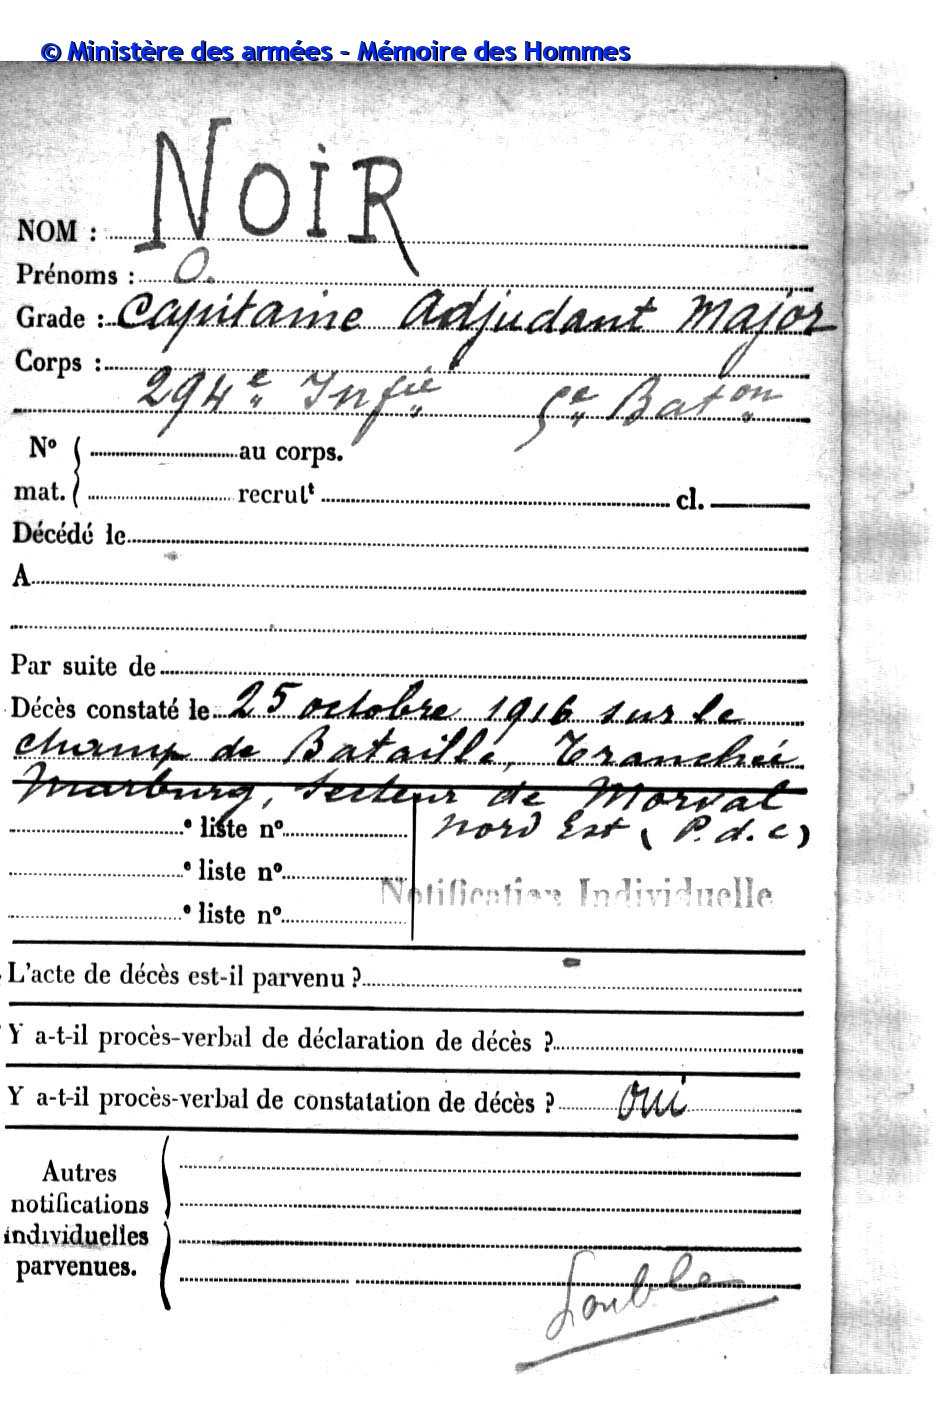 © Ministère des armées - Mémoire des Hommes
NOM : NOIR
Prénoms : O.
Grade : Capitaine Adjudant Major
Corps :
294e Infie 5e Baton
No au corps.
mat. recrutt cl.
Décédé le
A
Par suite de
Décès constaté le 25 octobre 1916 sur le
champ de Bataille, Tranchée
Marburg, Secteur de Morval
e liste no Nord Est (P.d.C)
e liste no
Notification Individuelle
e liste no
L'acte de décès est-il parvenu ?
Y a-t-il procès-verbal de déclaration de décès ?
Y a-t-il procès-verbal de constatation de décès ? oui
Autres
notifications
individuelles
parvenues.